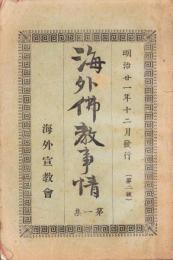 明治廿一年十二月發行
（第二版）
海外佛教事情
第一集
海外宣教會